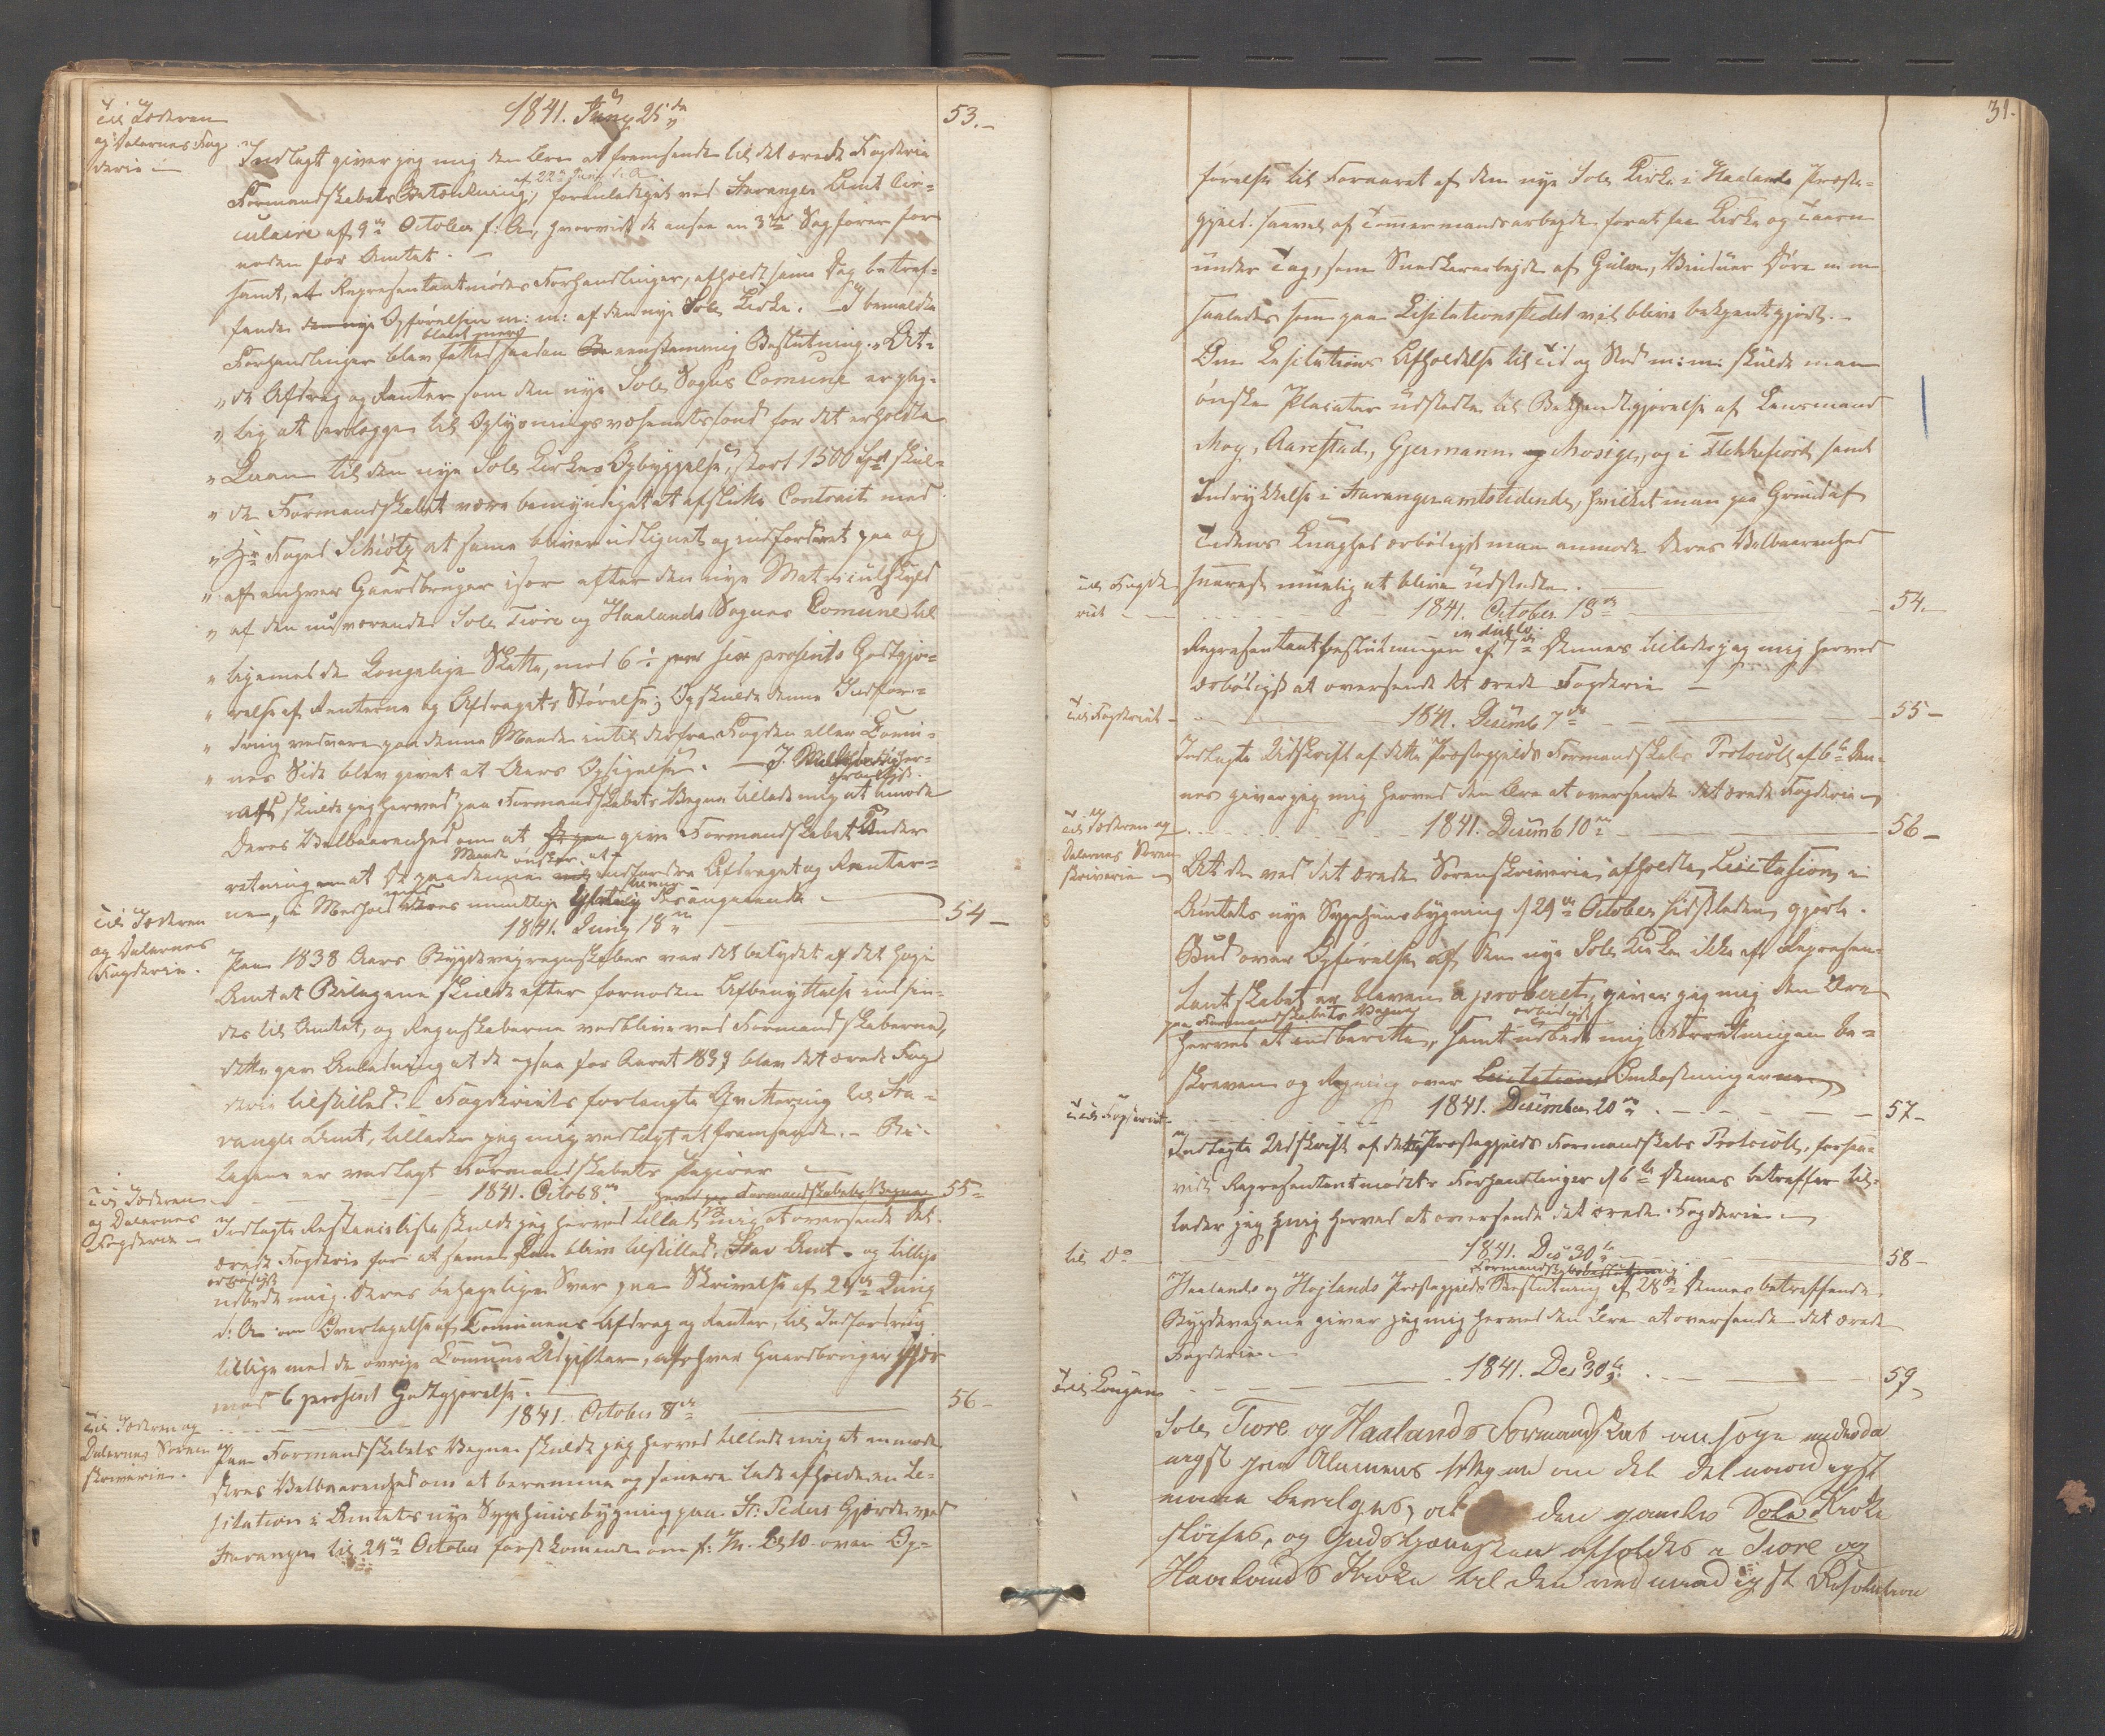 1841. Juny 25de
53.-
Til Jæderen
og Dalernes Fog
derie
Indlagt giver jeg mig den Ære at fremsende til det ærede Fogderie
af 22de Juny d. A.
Formandskabets Betænkning, foranlediget ved Stavanger Amts Cir-
culaire af 9de October f: A, hvorvidt de ansee en 3die Sagfører for
nøden for Amtet. -
samt, at Repræsentantmødes Forhandlinger, afholdt samme Dag betref-
fende den nye Opførelsen m: m: af den nye Sole Kirke. - I bemeldte
blandt mere
Forhandlinger blev fattet saadan eenstemmig Beslutning. "At
" de Afdrag og Renter som den nye Sole Sogns Comune er plig-
" tig at erlægge til Oplysningsvæsenets fond for det erholdte
" Laan til den nye Sole Kirkes Opbyggelse, stort 1500 Spd skul-
" de Formandskabet være bemyndiget at afslutte Contract med
" Hr Foged Schiøtz at samme bliver udlignet og indfordret paa og
" af enhver Gaardbruger især efter den nye Matriculskyld
" af den nuværende Sole Tiore og Haalands Sognes Comune til
" ligemed de Kongelige Skatte, mod 6 : sex prosents Godtgjø-
" relse af Renterne og Afdragets Størelse; Og skulde denne Indfor-
" dring vedvare paa denne Maade intil derfra Fogden eller Comu-
" nes Side blev givet et Aars Opsigelse. -
skulde jeg herved paa Formandskabets Vegne tillade mig at anmode
Deres Velbaarenhed om at give Formandskabet Under
Maade ønsker at
retning om at De paa denne indfordre Afdraget og Renter-
ne, i Medhold mundtlige Ytring desangaaende
Til Jæderen
og Dalernes
Fogderie.
1841. Juny 18de
54-
Paa 1838 Aars Bygdeveiregnskaber var det betydet af det høie
Amt at Bilagene skulde efter fornøden Afbenyttelse indsen-
des til Amtet, og Regnskaberne vedblive ved Formandskaberne,
dette gav Anledning at de ogsaa for Aaret 1839 blev det ærede Fog
derie tilstillet. Fogderiets forlangte Qvittering til Sta-
vanger Amt, tillader jeg mig vedlagt at fremsende. - Bi-
lagene er vedlagt Formandskabets Papirer
Til Jæderen
og Dalernes
Fogderie
1841. Octob 8de
paa Formandskabets Vegne
55-
Indlagte Restanceliste skulde jeg herved tillade mig at oversende det
ærede Fogderie for at samme kan blive tilstillet Stav Amt - og tillige
ærbødigst
udbede mig Deres behagelige Svar paa Skrivelse af 25de Juny
d: A om Overtagelse af Comunens Afdrag og Renter, til Indfordring
tillige med de øvrige Comune Udgifter, af hver Gaardbruger
mod 6 prosent Godtgjørelse.
Til Jæderen og
Dalernes Soren
skriverie.
1841. October 8de
56-
Paa Formandskabets Vegne skulde jeg herved tillade mig at anmode
Deres Velbaarenhed om at beramme og senere lade afholde en Li-
sitation i Amtets nye Sygehuusbygning paa St: Peders Gjerde ved
Stavanger til 29de October førstkomende om f: M. Kl 10. over Op-
31.
førelse til Forvaret af den nye Sole Kirke i Haalands Præste-
gjeld. saavel af Tømermandsarbeyde forat faa Kirke og Taarn
under Tag, som Snedkerarbejde af Gulve, Vinduer Døre m m
saaledes som paa Lisitationsstedet vil blive bekjentgjort. -
Om Lisitations Afholdelse til Tid og Sted m: m: skulde man
ønske Placater udstedte til Bekjendtgjørelse af Lensmænd
Moy, Aarestad, Gjermann og Mosige, og i Flekkefiord, samt
Indrykkelse i Stavanger amtstidende, hvilket man paa Grund af
Tidens Knaphed ærbødigst maa anmode Deres Velbaarenhed
snarest muelig at blive udstedte.
Til Fogde
riet
1841. October 18de
54.
in duplo
Repræsentantbeslutningen af 7de Dennes tillader jeg mig herved
ærbødigst at oversende det ærede Fogderie
Til Fogderiet -
1841. Decemb 7de
55-
Indlagte Udskrift af dette Præstegjelds Formandskabs Protocoll af 6te Den-
nes giver jeg mig herved den Ære at oversende det ærede Fogderie
Til Jæderen og
Dalernes Soren
skriverie
1841. Decemb 10de
56-
At de ved det ærede Sorenskriverie afholdte Licitasion i
Amtets nye Sygehuusbygning d 29de October sidstleden gjorte
Bud over Opførelse af den nye Sole Kirke ikke af Repræsen-
tantskabet er bleven aproberet, giver jeg mig den Ære
paa Formandskabets Vegne
ærbødigst
herved at indberette, samt udbede mig Forretningen be-
skreven og Regning over Licitations Omkostningerne
Til Fogderiet
1841. December 20de
57-
Indlagte Udskrift af dette Præstegjelds Formandskabs Protocoll, forsaa-
vidt Repræsentantmødets Forhandlinger d 6te Dennes betræffer til-
lader jeg mig herved at oversende det ærede Fogderie
til Do
1841. Des 30te
58-
Formandskabsbeslutning
Haalands og Høilands Præstegjelds Beslutning af 28de Dennes betreffende
Bygdeveyene giver jeg mig herved den Ære at oversende det ærede
Fogderie
Til Kongen
1841. Des 30te
59-
Sole Tiore og Haalands Formandskab ansøge underda
nigst paa Almuens Vegne om det det naadigst
maae bevilges, at den gamle Sole Kirke
sløifes, og Gudstjenesten afholdes i Tiore og
Haalands Kirke til den ved naadigst Resolution